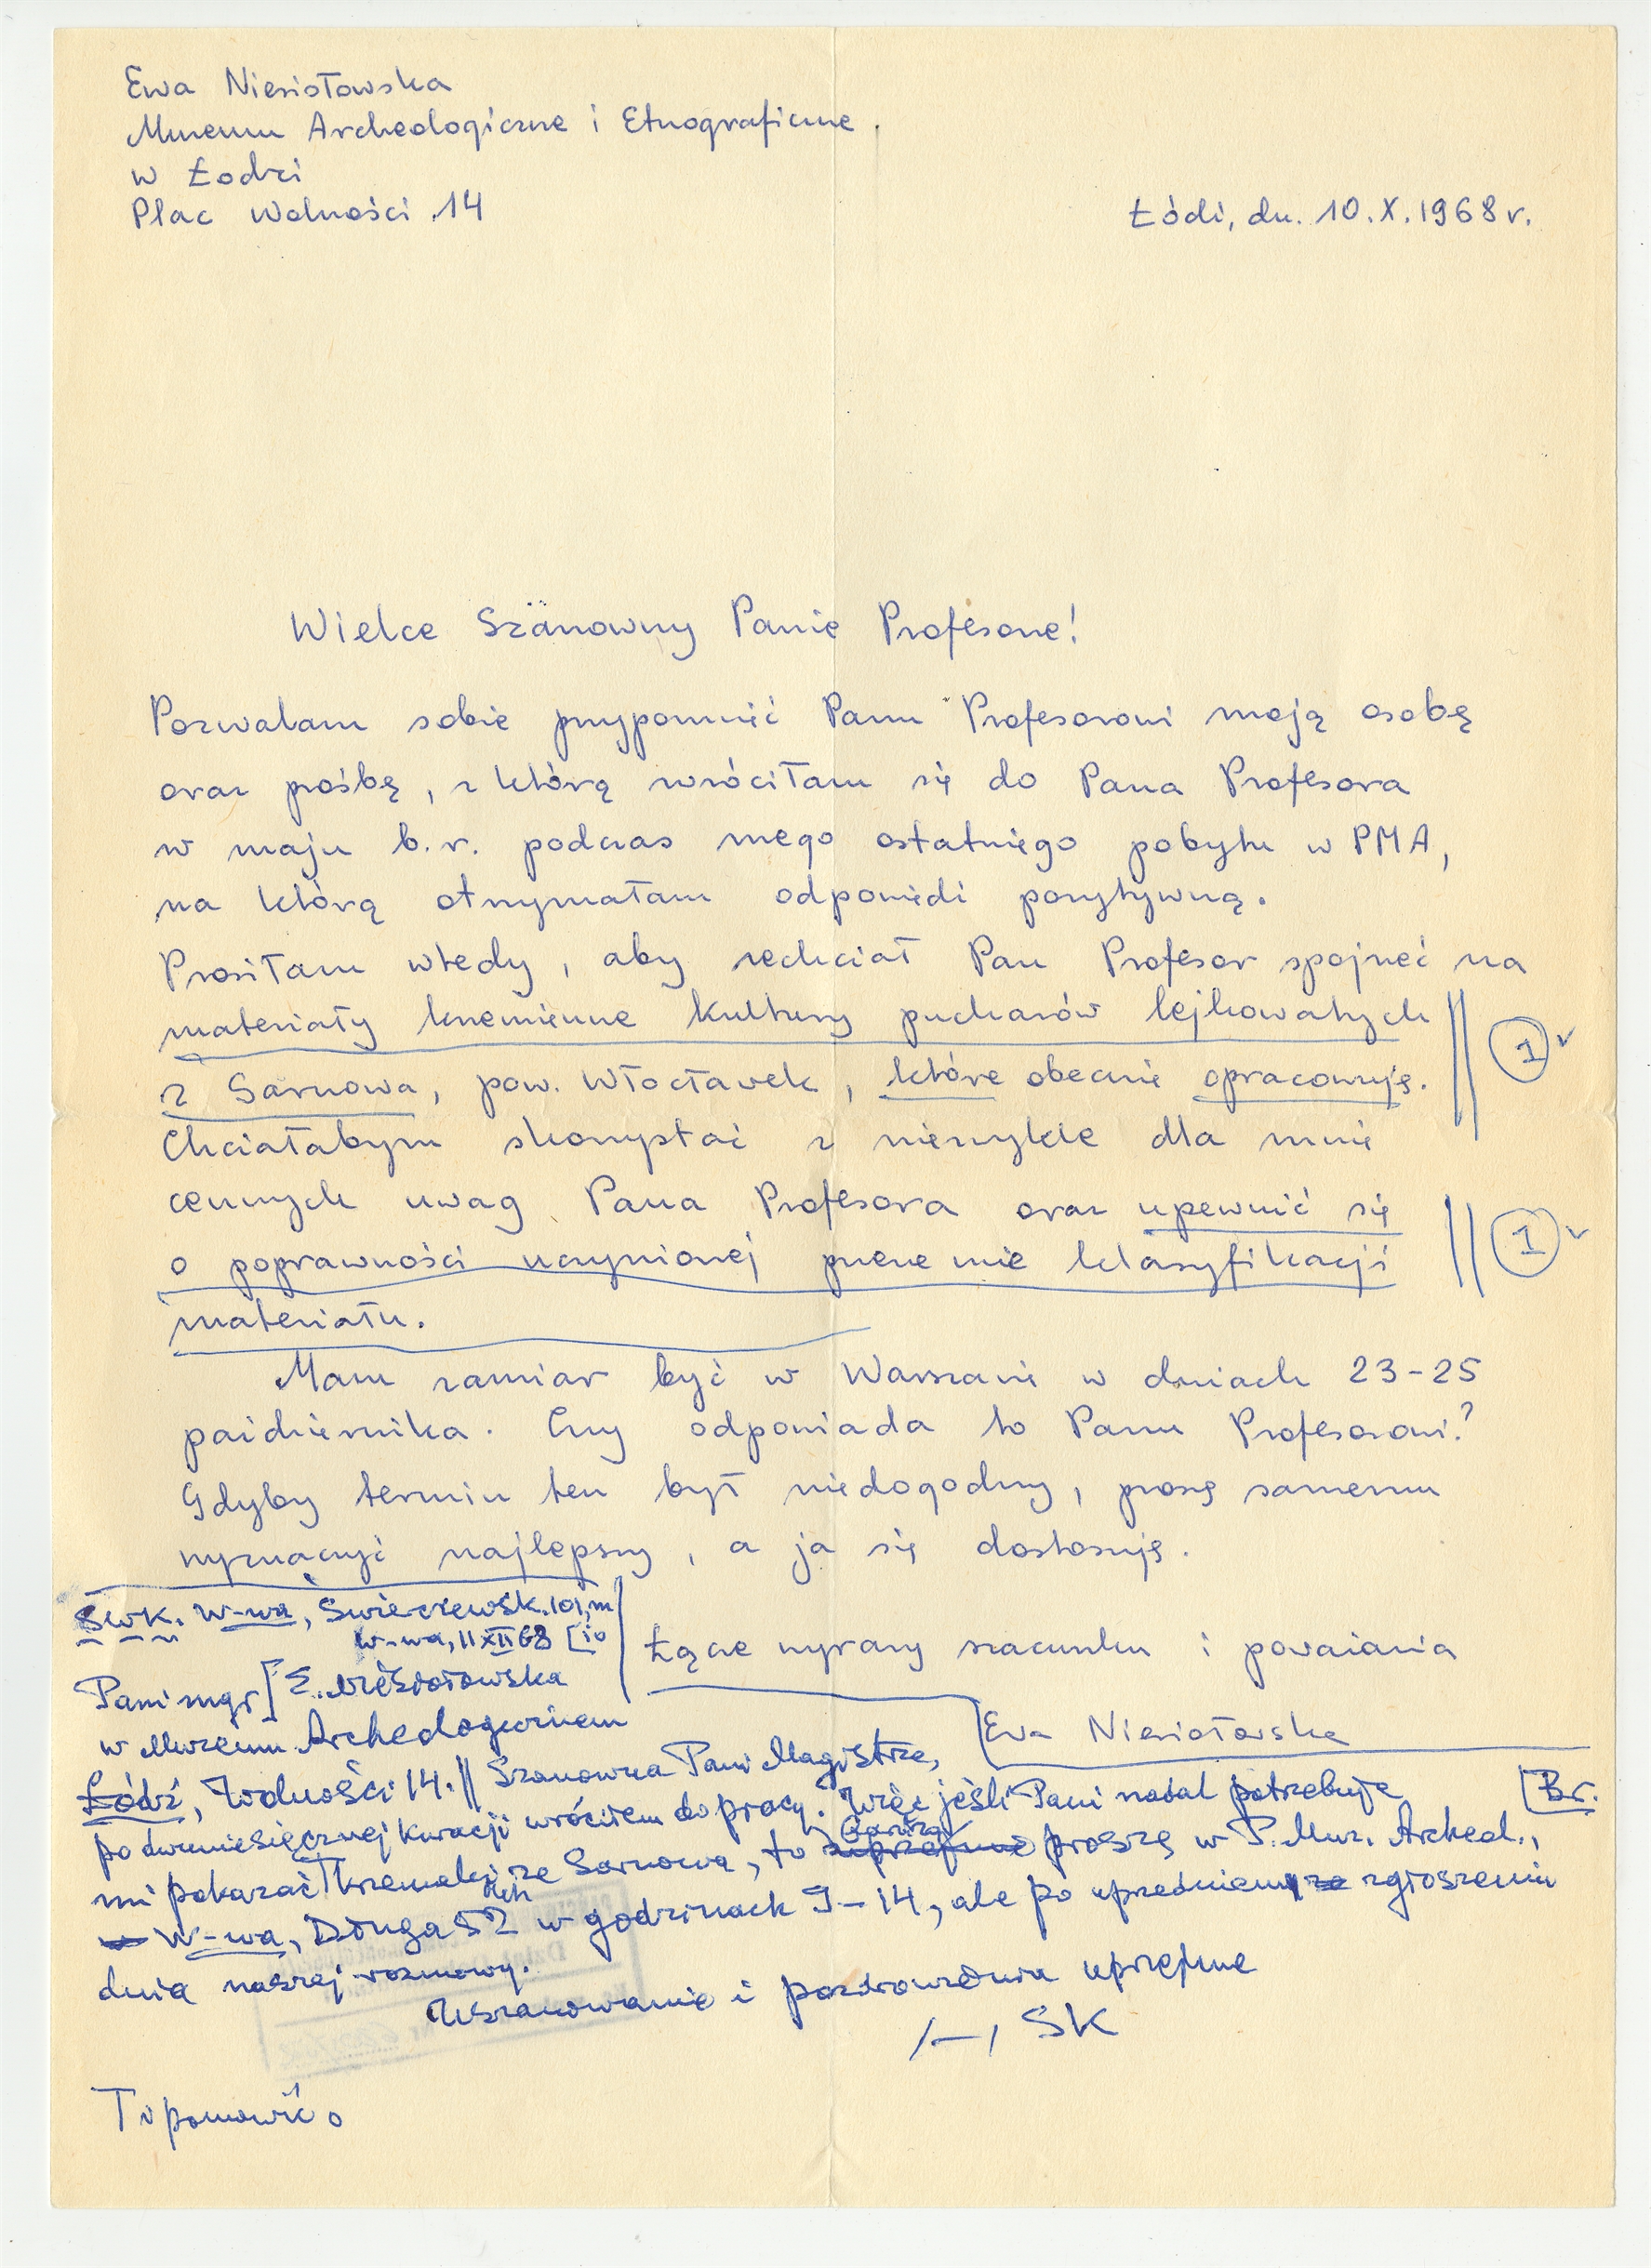 Ewa Niesiołowska
Muzeum Archeologiczne i Etnograficzne
w Łodzi
Plac Wolności 14
Łódź, dn. 10.X.1968 r.
Wielce Szanowny Panie Profesorze!
Pozwalam sobie przypomnieć Panu Profesorowi moją osobę
oraz prośbę, z którą zwróciłam się do Pana Profesora
w maju b.r. podczas mego ostatniego pobytu w PMA,
na którą otrzymałam odpowiedź pozytywną.
Prosiłam wtedy, aby zechciał Pan Profesor spojrzeć na
materiały krzemienne kultury pucharów lejkowatych
z Sarnowa, pow. Włocławek, które obecnie opracowuję.
1
Chciałabym skorzystać z niezwykle dla mnie
cennych uwag Pana Profesora oraz upewnić się
o poprawności uczynionej przeze mnie klasyfikacji
1
materiału.
Mam zamiar być w Warszawie w dniach 23-25
października. Czy odpowiada to Panu Profesorowi?
Gdyby termin ten był niedogodny, proszę samemu
wyznaczyć najlepszy, a ja się dostosuję.
Łączę wyrazy szacunku i poważania
Ewa Niesiołowska
SWK. W-wa, Świerczewsk. 101, m
W-wa, 11 XII 68 [10
Pani mgr E. Niesiołowska
w Muzeum Archeologicznem
Łódź, Wolności 14. // Szanowna Pani Magistrze,
po dwumiesięcznej kuracji wróciłem do pracy. Więc jeśli Pani nadal potrzebuje [Br.
mi pokazać krzemienie ze Sarnowa, to bardzo proszę w P. Muz. Archeol.,
W-wa, Długa 52 w godzinach 9-14, ale po uprzedniem zgłoszeniu
dnia naszej rozmowy.
Uszanowanie i pozdrowienia uprzejme
/—/ SK